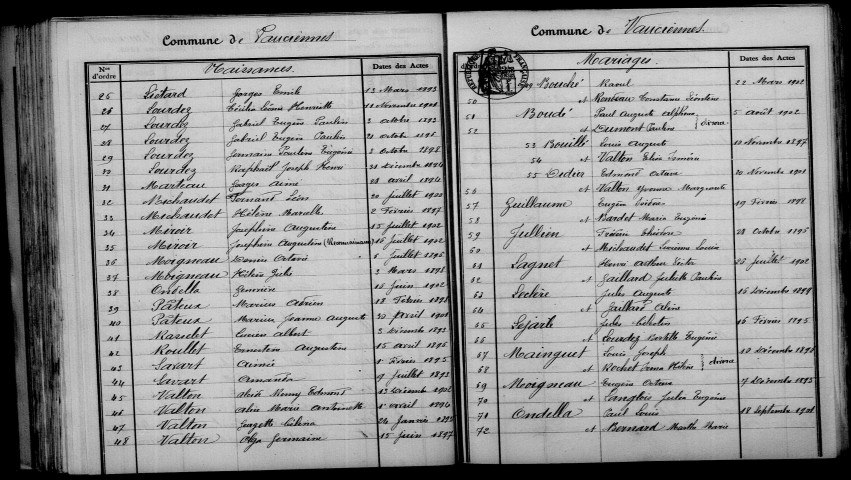 Commune de Vauciennes
Nos d'ordre Naissances. Dates des Actes
25 Liétard Georges Emile 13 Mars 1893
26 Sourdez Cécile Henriette 11 Novembre 1901
27 Sourdez Gabriel Eugène Paulin 2 octobre 1893
28 Sourdez Gabriel Eugène Paulin 20 octobre 1896
29 Sourdez Germaine Pauline Eugénie 2 Octobre 1898
30 Sourdez Raphaël Joseph Henri 31 Décembre 1894
31 Marteau Georges Aimé 28 avril 1894
32 Michaudet Fernand Léon 20 juillet 1900
33 Michaudet Hélène 2 Février 1897
34 Miroir Joséphine Augustine 15 juillet 1902
35 Miroir Joséphine Augustine (Reconnaissance) 16 juillet 1902
36 Moigneau Louis Octave 5 juillet 1895
37 Moigneau Jules 3 Mars 1898
38 Ondella Geneviève 15 juin 1902
39 Pâteux Marius Adrien 18 Février 1898
40 Pâteux Marius Jeanne Auguste 30 Avril 1901
41 Lucien Albert 3 Décembre 1892
42 Roullet Ernestine Augustine 15 avril 1895
43 Savart Aimée 5 Février 1895
44 Savart Amanda 9 juillet 1893
45 Valton Remy Edmond 13 Décembre 1902
46 Valton Marie Antoinette 5 avril 1894
47 Valton 24 Janvier
48 Valton Olga Germaine 15 Juin 1897
Commune de Vauciennes.
Mariages. Dates des Actes
49 Bouché Raoul 22 Mars 1902
50 et Constance
51 Boudé Paul Auguste Alphonse 5 août 1902
52 et Dumont Pauline divorce
53 Bouillé Louis Auguste 11 Novembre 1897
54 et Valton
55 Didier Edmond Octave 20 Novembre 1901
56 et Valton Yvonne Marguerite
57 Guillaume Eugène 19 Février 1898
58 et Bardet Marie Eugénie
59 Jullien Théodore 28 Octobre 1895
60 et Michaudet Louise
61 Lagnet Henri Arthur 26 Juillet 1902
62 et Gaillard Juliette Pauline
63 Leclère Jules Auguste 16 Décembre 1899
64 et
65 Jules 16 Février 1895
66 et Sourdez Eugénie
67 Mainguet Louis Joseph 10 Décembre
68 et Rochet divorce
69 Moigneau Eugène Octave 7 Décembre 1895
70 et Langlois
71 Ondella Paul Louis 18 Septembre 1901
72 et Bernard Marthe Marie